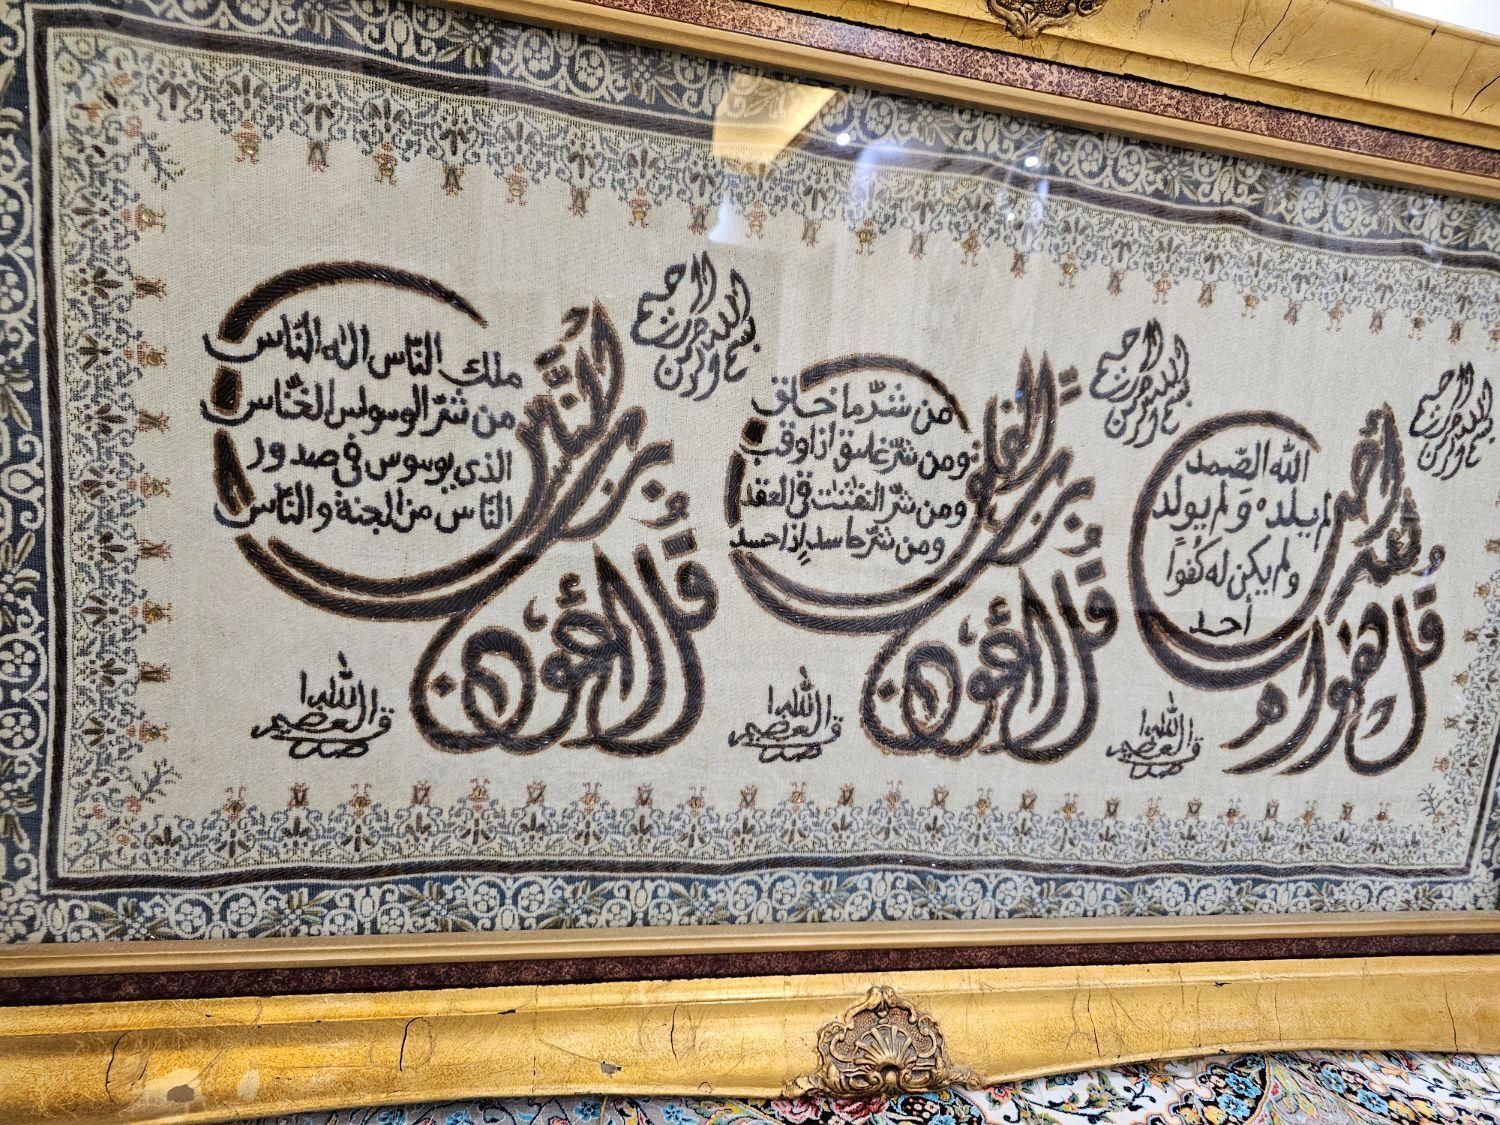 بسم الله الرحمن الرحيم
قل هو الله أحد
الله الصّمد
لم يلده ولم يولد
ولم يكن له كفوا
أحد
صدق الله العظيم
بسم الله الرحمن الرحيم
قل أعوذ برب الفلق
من شرّ ما خلق
ومن شرّ غاسق اذا وقب
ومن شرّ النفثت في العقد
ومن شرّ حاسد إذا حسد
صدق الله العظيم
بسم الله الرحمن الرحيم
قل أعوذ برب النّاس
ملك النّاس اله النّاس
من شرّ الوسواس الخنّاس
الذي يوسوس في صدور
النّاس من الجنة والنّاس
صدق الله العظيم